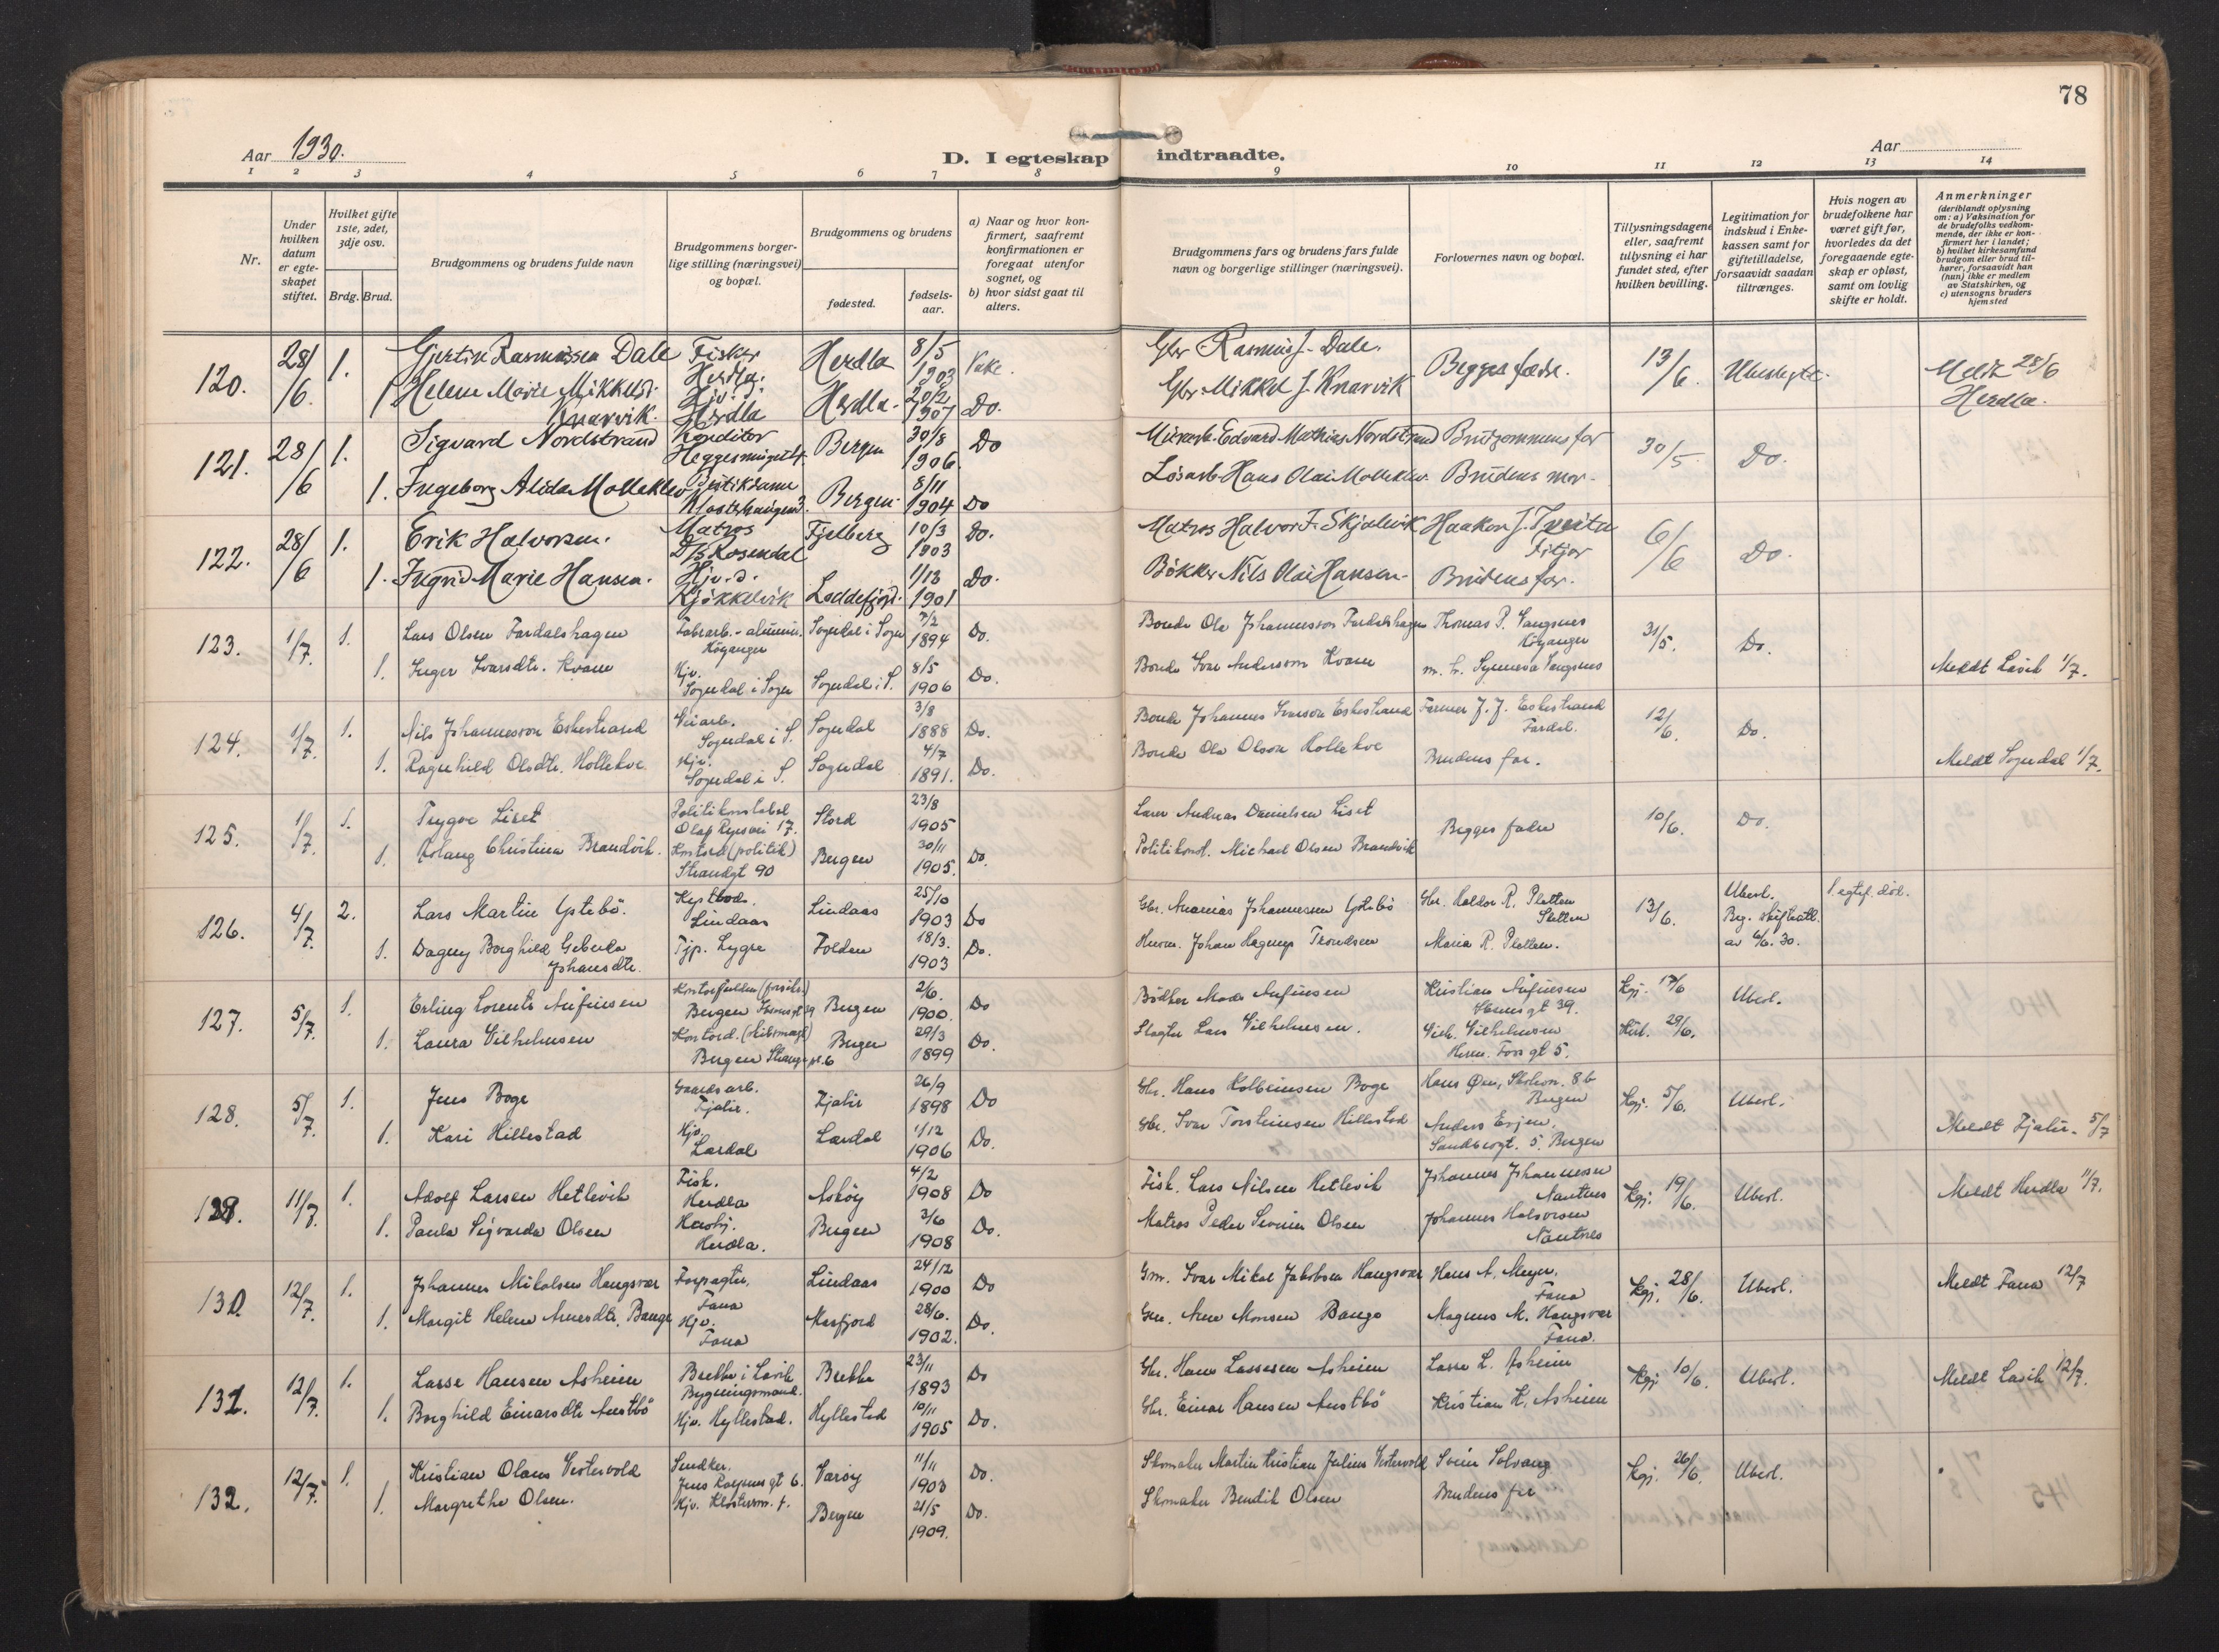 78
Aar 1930.
D. I egteskap indtraadte.
Aar
1 2 3 4 5 6 7 8 9 10 11 12 13 14
Nr.
Under hvilken datum er egteskapet stiftet.
Hvilket gifte 1ste, 2det, 3dje osv.
Brdg. Brud.
Brudgommens og brudens fulde navn
Brudgommens borgerlige stilling (næringsvei) og bopæl.
Brudgommens og brudens
fødested.
fødselsaar.
a) Naar og hvor konfirmert, saafremt konfirmationen er foregaat utenfor sognet, og
b) hvor sidst gaat til alters.
Brudgommens fars og brudens fars fulde navn og borgerlige stillinger (næringsvei).
Forlovernes navn og bopæl.
Tillysningsdagene eller, saafremt tillysning ei har fundet sted, efter hvilken bevilling.
Legitimation for indskud i Enkekassen samt for giftetilladelse, forsaavidt saadan tiltrænges.
Hvis nogen av brudefolkene har været gift før, hvorledes da det foregaaende egteskap er opløst, samt om lovlig skifte er holdt.
Anmerkninger
(deriblandt oplysning om: a) Vaksination for de brudefolks vedkommende, der ikke er konfirmert her i landet; b) hvilket kirkesamfund brudgom eller brud tilhører, forsaavidt han (hun) ikke er medlem av Statskirken, og c) utensogns bruders hjemsted
120. 28/6 1. Gjertin Rasmussen Dale Fisker Herdla Herdla 8/5 1903 Gbr Rasmus J. Dale. Begges fædre. 13/6. Meldt 28/6 Herdla.
1 Helene Marie Mikkelsd. Knarvik. Hjv. d. Herdla Herdla 20/2 1907 Do. Gbr. Mikkel J. Knarvik
121. 28/6 1. Sigvard Nordstrand Konditor Bergen 30/8 1906. Do Edvard Mathias Nordstrand Brudgommens far 30/5. Do.
1. Ingeborg Alida Molleklev Butikdame Bergen 8/11 1904 Do Løsarb. Hans Olai Molleklev. Brudens mor.
122. 28/6 1. Erik Halvorsen. Matros D/S Rosendal Fjelberg 10/3 1903 Do. Matros Halvor F. Skjelvik Haakon J. Tveita Fitjar 6/6 Do.
1. Ingrid Marie Hansen. Hjv. d. Kjøkkelvik Loddefjord. 1901 Do. Bøkker Nils Olai Hansen. Brudens far.
123. 1/7. 1. Lars Olsen Fardalshagen Fabrarb. - alumin. Høyanger Sogndal i Sogn 7/2 1894 Do. Bonde Ole Johannesson Fardalshagen Thomas P. Vangsnes Høyanger 31/5. Do.
1. Inger Ivarsdtr. Kvam Hjv. Sogndal i Sogn Sogndal i S. 8/5 1906 Do. Bonde Ivar Anderson Kvam Meldt Lavik 1/7.
124. 1/7. 1. Nils Johannesson Eskestrand Veiarb. Sogndal i S. Sogndal 3/8 1888 Do. Bonde Johannes Ivarson Eskestrand Farmer J. J. Eskestrand Fardal. 12/6. Do.
1. Ragnhild Olsdtr. Hollekve Hjv. Sogndal i S. Sogndal 4/7 1891. Do. Bonde Ola Olson Hollekve Brudens far. Meldt Sogndal 1/7.
125. 1/7. 1. Trygve Liset Politikonstabel Olaf Ryesvei 17. Stord 23/8 1905 Lærer Andreas Danielsen Liset Begges fædre 10/6. Do.
1. Aslaug Christina Brandvik. Kontord. (politik) Strandgt 90 Bergen 30/11 1905. Do. Politikonst. Michael Olsen Brandvik
126. 4/7. 2. Lars Martin Ystebø. Lindaas Lindaas 25/10 1903 Do Gbr. Ananias Johannessen Ystebø Gbr. Haldor R. Pletten 13/6. Ubesl. 1. egtef. død.
1. Dagny Borghild Johansdtr. Tjp. Lygre Folden 18/3. 1903 Do. Johan Hagerup Trondsen Maria R. Pletten. av 6/6. 30.
127. 5/7. 1. Erling Lorentz Anfinsen Bergen Bergen 2/6. 1900. Do Bødker Mads Anfinsen Kristian Anfinsen gt 39. Kgj. Ubesl.
1. Laura Vilhelmsen Kontord. Bergen Bergen 29/3 1899 Do. Slagter Lars Vilhelmsen. Vilh. Vilhelmsen Herm. Fossgt 5. 29/6.
128. 5/7. 1. Jens Boge Gaardsarb. Fjaler. Fjaler 26/9 1898 Do Gbr. Hans Kolbeinsen Boge Bergen Kgj. 5/6. Ubesl.
1. Kari Hillestad Hjv. Lærdal Lærdal 1/12 1906 Do. Gbr. Ivar Torsteinsen Hillestad Bergen Meldt Fjaler. 5/7
129. 11/7. 1. Adolf Larsen Hetlevik Fisk. Herdla Askøy 4/2 1908 Do Fisk. Lars Nilsen Hetlevik Johannes Johannessen Nautnes Kgj. 19/6. Ubesl. Meldt Herdla 11/7.
1. Paula Sigvarda Olsen Herdla. Bergen 3/6 1908 Do. Matros Peder Severin Olsen Johannes Halvorsen Nautnes
130. 12/7. 1. Johannes Mikalsen Haugsvær Forpagter. Fana Lindaas 24/12 1900 Do Gm. Ivar Mikal Jakobsen Haugsvær Hans A. Meyer. Fana Kgj. 28/6. Ubesl. Meldt Fana 12/7
1. Margit Helene Arnesdtr. Bauge Hjv. Fana Masfjord 28/6. 1902. Do. Gbr. Arne Monsen Bauge Magnus M. Haugsvær Fana.
131. 12/7. 1. Lasse Hansen Asheim Brekke i Lavik Bygningsmand. Brekke 23/11 1893 Do Gbr. Hans Lassesen Asheim Lasse L. Asheim Kgj. 10/6. Ubesl. Meldt Lavik 12/7.
1. Borghild Einarsdtr Austbø Hjv. Hyllestad. Hyllestad 10/11 1905 Do. Gbr. Einar Hansen Austbø Kristian H. Asheim
132. 12/7. 1. Kristian Olaus Vestervold Snedker. Værøy 11/11 1903 Do. Skomaker Martin Kristian Julius Vestervold Svein Solvang Kgj. 26/6. Ubesl.
1. Margrethe Olsen. Hjv. Bergen 21/5 1909. Do. Skomaker Bendik Olsen Brudens far